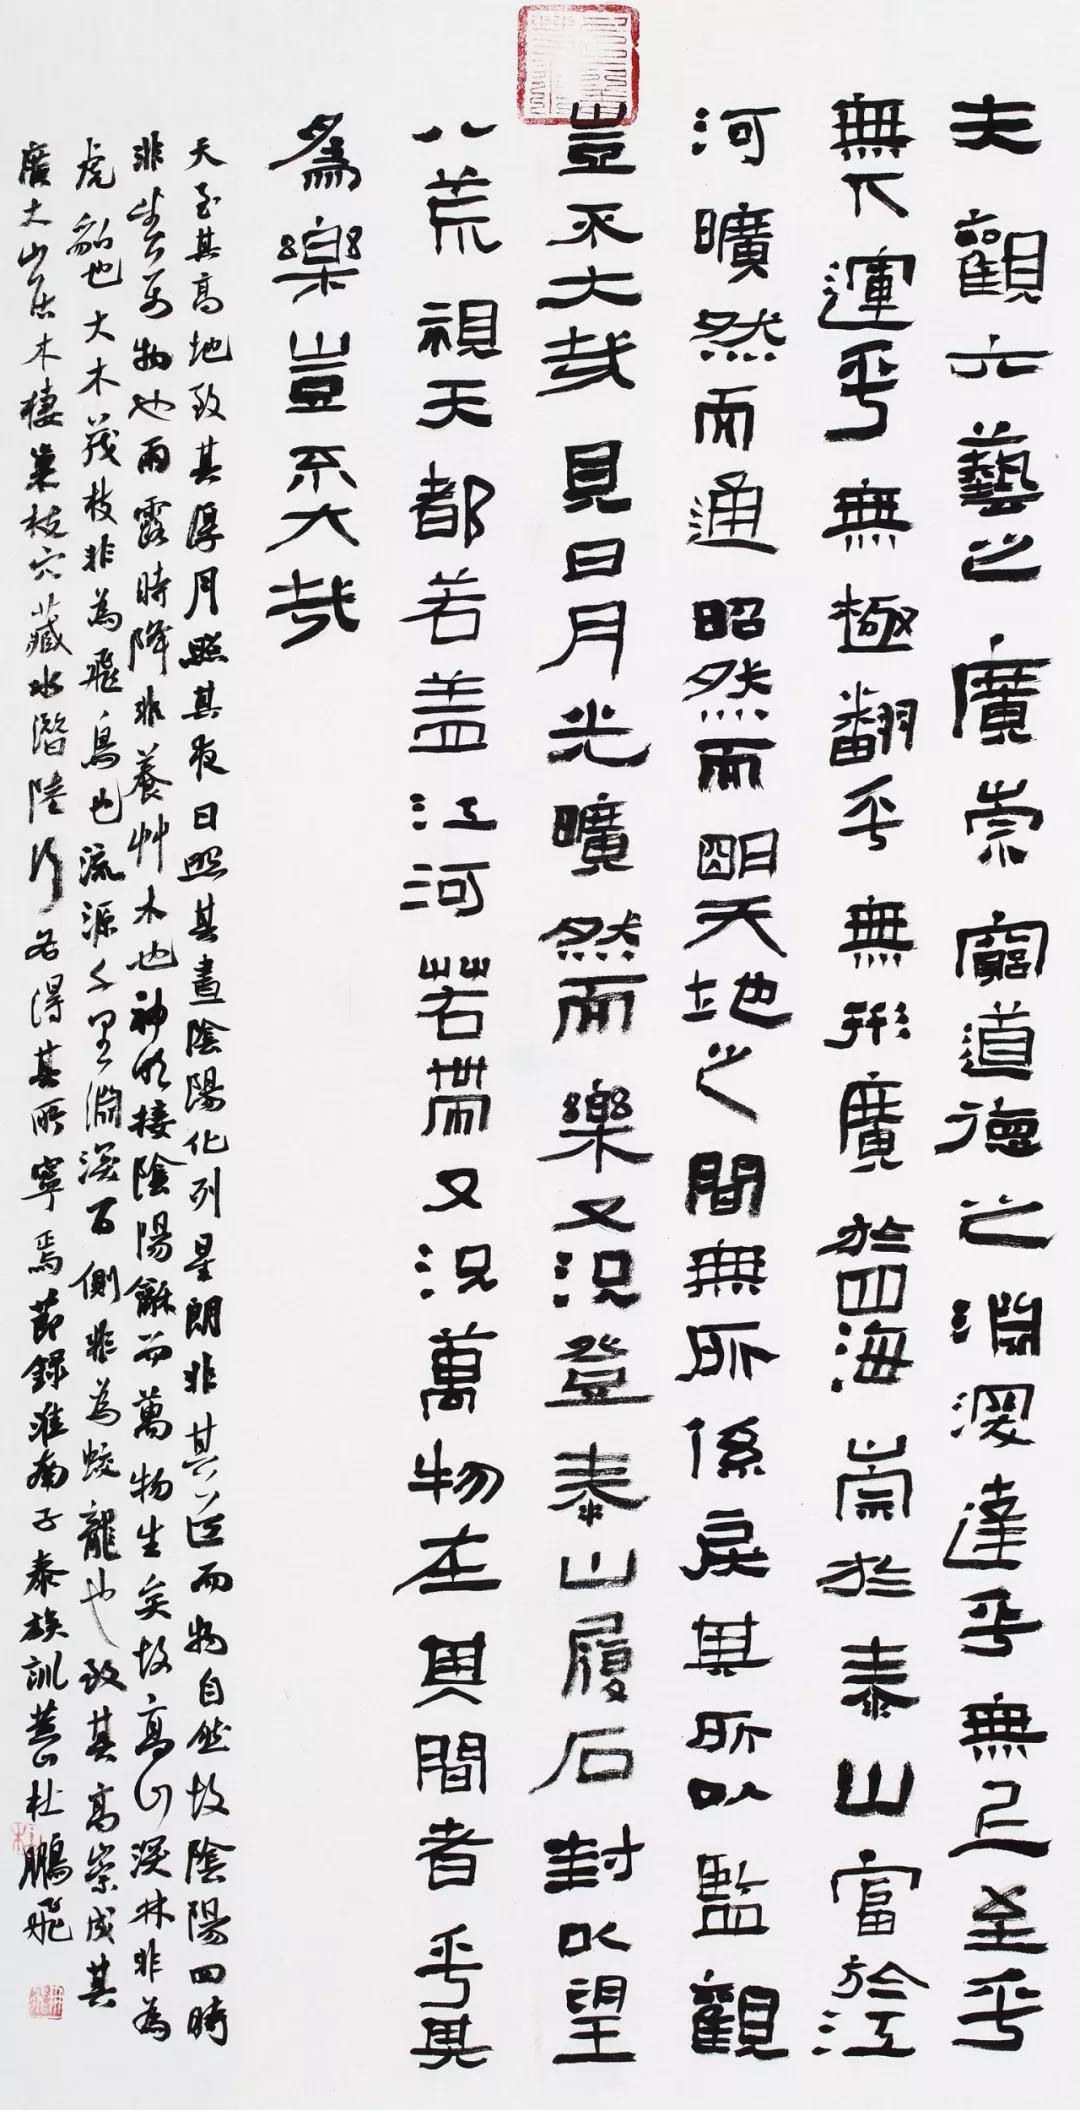 夫觀六藝之廣崇窮道德之淵深達乎無上至乎
無下運乎無極翻乎無形廣於四海崇於泰山富於江
河曠然而通昭然而明天地之間無所係戾其所以監觀
豈不大哉見日月光曠然而樂又況登泰山履石封以望
八荒視天都若盖江河若帶又況萬物在其間者乎其
為樂豈不大哉
天至其高地致其厚月照其夜日照其晝陰陽化列星朗非其道而物自然故陰陽四時
非生万物也雨露時降非養艸木也神明接陰陽龢而萬物生矣故高山深林非為
虎豹也大木茂枝非為飛鳥也流源千里淵深百側非為蛟龍也致其高崇成其
廣大山居木棲巢枝穴藏水潛陸行各得其所寧焉節錄淮南子泰族訓 杜鵬飛